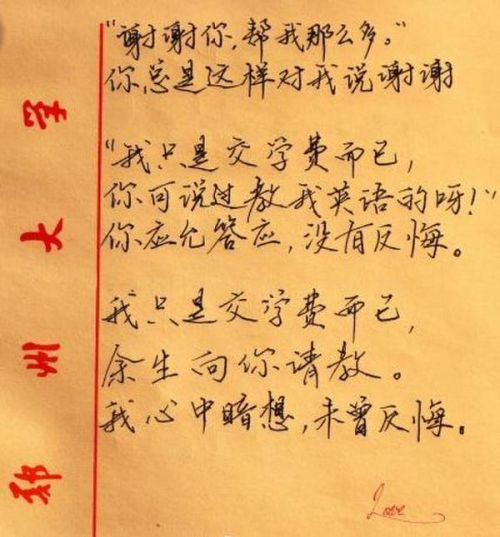 “谢谢你，帮我那么多。”
你总是这样对我说谢谢
“我只是交学费而已，
你可说过教我英语的呀！”
你应允答应，没有反悔。
我只是交学费而已，
余生向你请教。
我心中暗想，未曾反悔。
Love
郑州大学